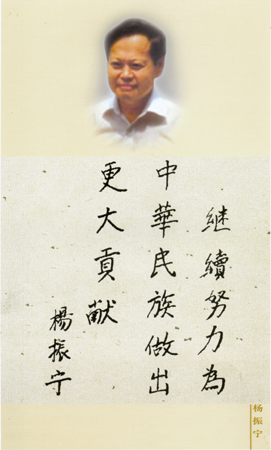 继續努力為
中華民族做出
更大貢献
楊振宁
杨振宁